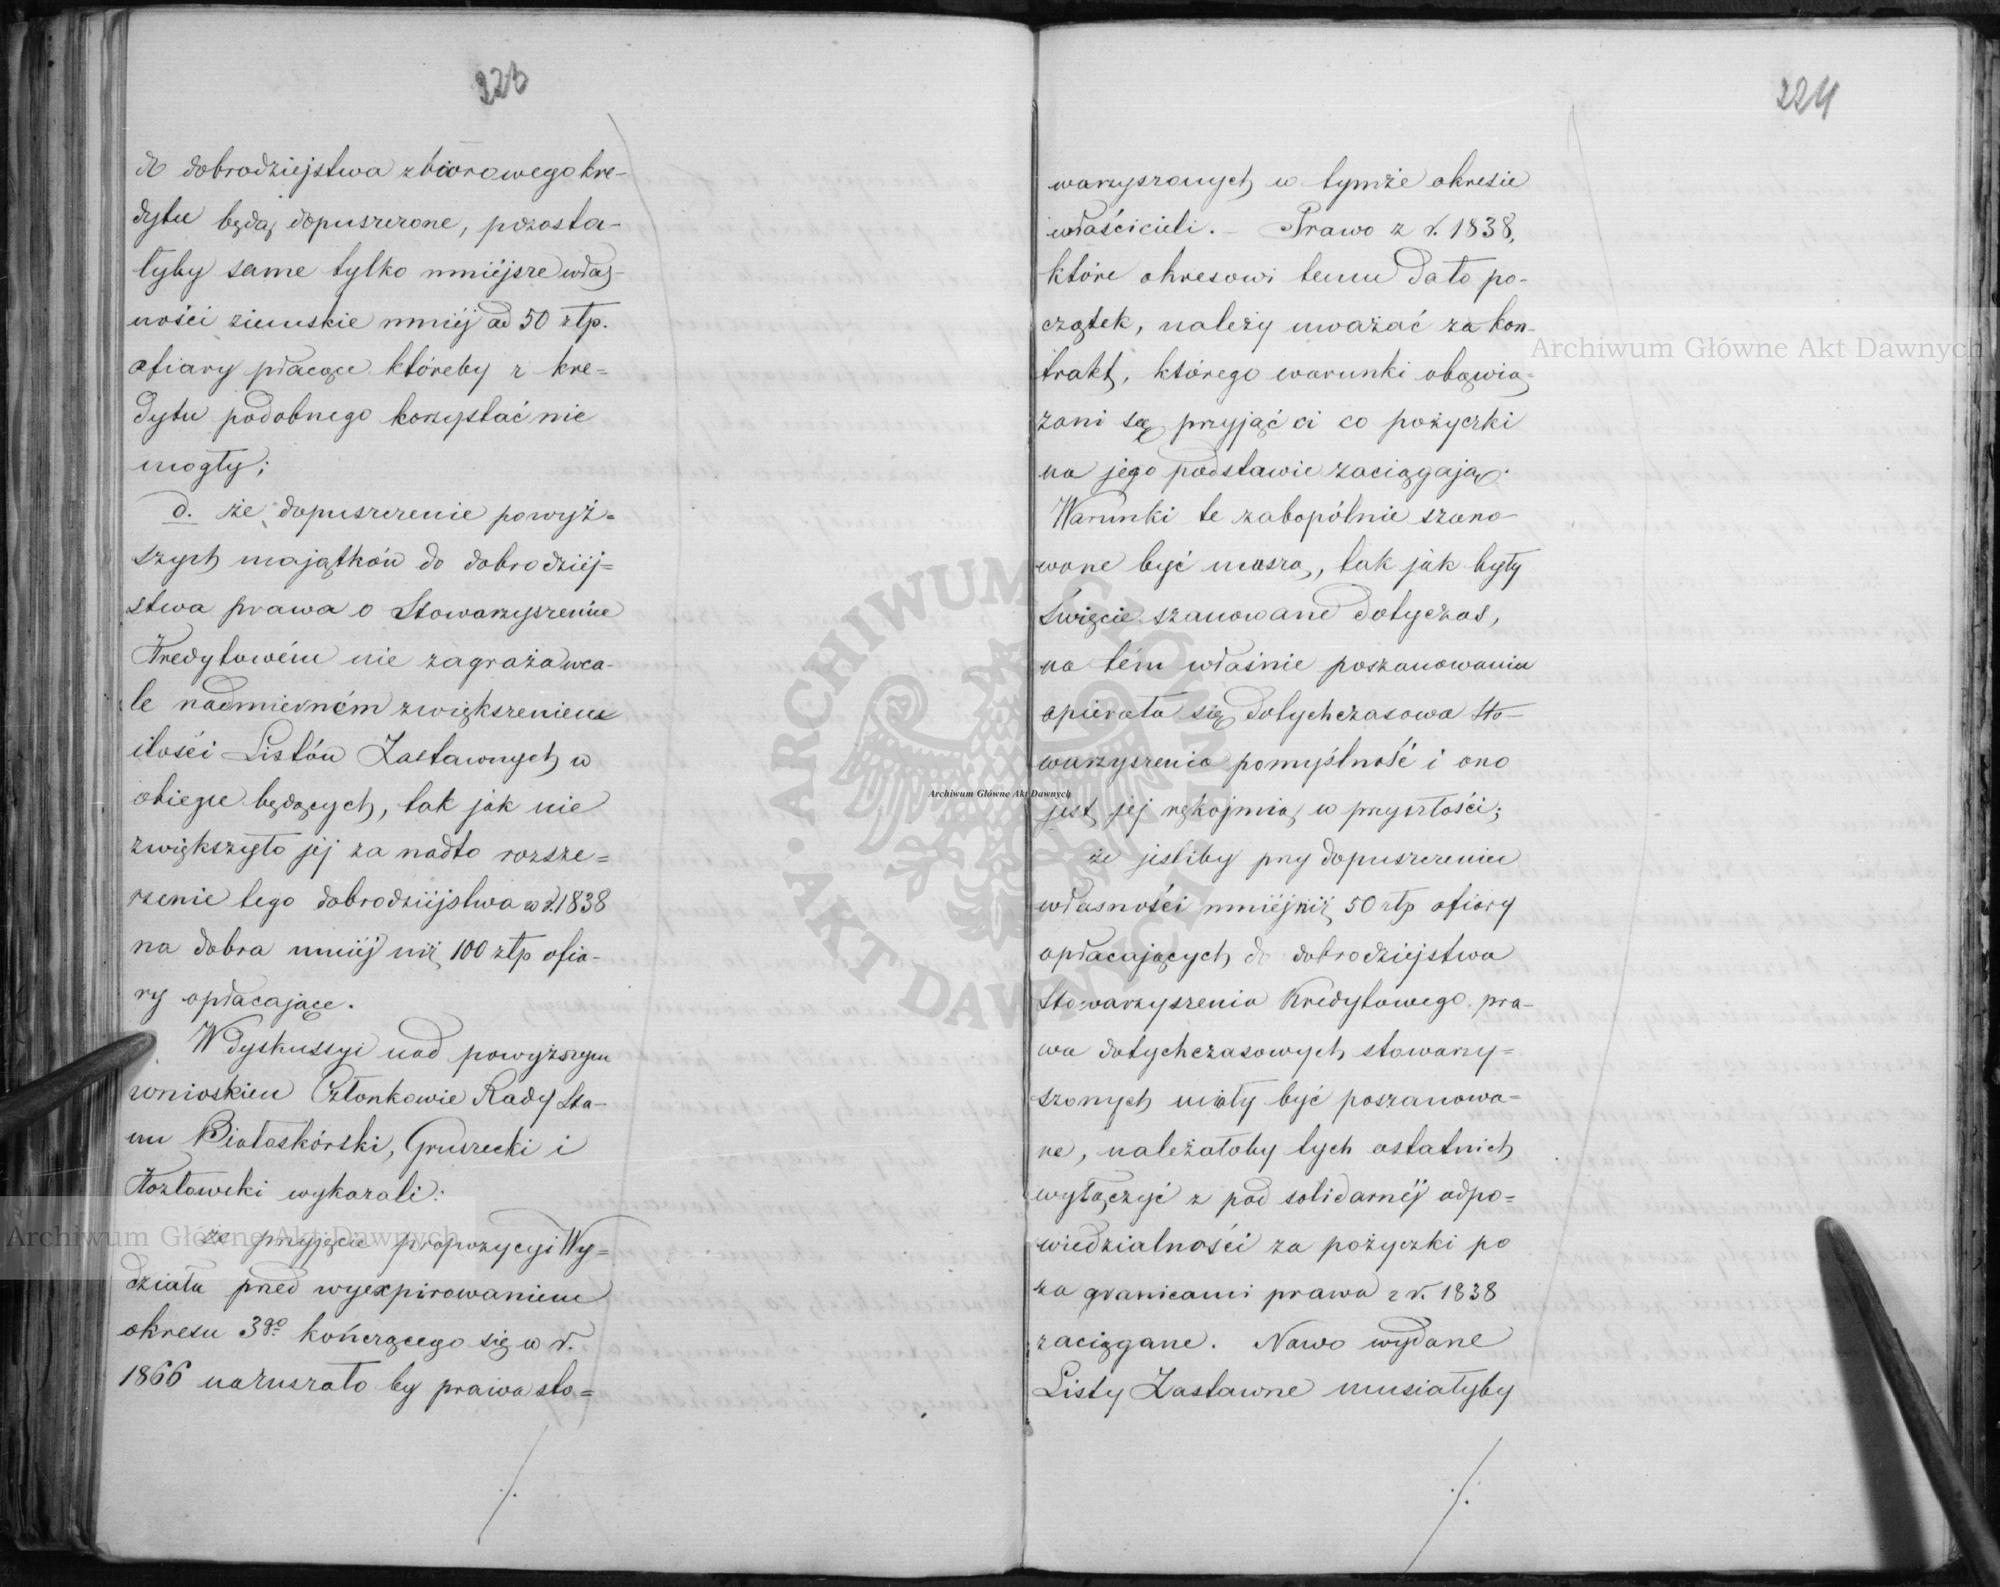 223
do dobrodziejstwa zbiorowego kre-
dytu będą dopuszczone, pozosta-
łyby same tylko mniéjsze włas-
ności ziemskie mniéj od 50 złp.
ofiary płacące któreby z kre=
dytu podobnego korzystać nie
mogły;
d. że dopuszczenie powyż=
szych majątków do dobrodziéj=
stwa prawa o Stowarzyszeniu
Kredytowém nie zagraża wca-
le nadmierném zwiększeniem
ilości Listów Zastawnych w
obiegu będących, tak jak nie
zwiększyło jej za nadto rozsze=
rzenie tego dobrodziéjstwa w r. 1838
na dobra mniéj niż 100 złp ofia-
ry opłacające.
W dyskussyi nad powyższym
wnioskiem Członkowie Rady Sta-
nu Białoskórski, Gruszecki i
Kozłowski wykazali:
że przyjęcie propozycyi Wy=
działu przed wyexpirowaniem
okresu 3go kończącego się w r.
1866 naruszało by prawa sto=
./.
224
warzyszonych w tymże okresie
właścicieli. – Prawo z r. 1838,
które okresowi temu dało po-
czątek, należy uważać za kon-
trakt, którego warunki obowią-
zani są przyjąć ci co pożyczki
na jego podstawie zaciągają.
Warunki te zobopólnie szano-
wane być muszą, tak jak były
święcie szanowane dotyczas,
na tém właśnie poszanowaniu
opierała się dotychczasowa Sto-
warzyszenia pomyślność i ono
jest jej rękojmią w przyszłości;
że jeśliby przy dopuszczeniu
własności mniéj niż 50 złp ofiary
opłacających do dobrodziejstwa
Stowarzyszenia Kredytowego pra-
wa dotychczasowych stowarzy=
szonych miały być poszanowa=
ne, należałoby tych ostatnich
wyłączyć z pod solidarnéj odpo=
wiedzialności za pożyczki po
za granicami prawa z r. 1838
zaciągane. Nowo wydane
Listy Zastawne musiałyby
./.
Archiwum Główne Akt Dawnych
Archiwum Główne Akt Dawnych
Archiwum Główne Akt Dawnych
ARCHIWUM GŁÓWNE · AKT DAWNYCH ·